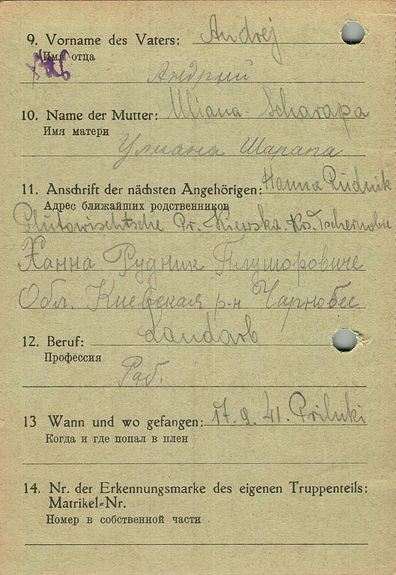 9. Vorname des Vaters: Andrej
Имя отца
Андрий
10. Name der Mutter: Uliana Scharapa
Имя матери
Улиана Шарапа
11. Anschrift der nächsten Angehörigen: Hanna Rudnik
Адрес ближайших родственников
Plutowischtsche Pr. Kiewska Kr. Tschernobie
Ханна Рудник Плуторовиче
Обл. Киевская р-н Чарнобес
12. Beruf: Landarb
Профессия
Раб.
13 Wann und wo gefangen: 17. 9. 41. Priluki
Когда и где попал в плен
14. Nr. der Erkennungsmarke des eigenen Truppenteils:
Matrikel-Nr.
Номер в собственной части